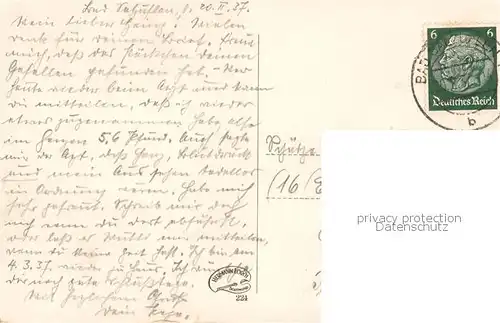 Bad Salzuflen, d. 20.II.37.
Mein lieber Heinz! Vielen
Dank für deinen Brief. Freut
mich, daß das Päckchen deinen
Gefallen gefunden hat. - War
heute wieder beim Arzt und kann
dir mitteilen, daß ich wieder
etwas zugenommen habe also
im Ganzen 5,6 Pfund. Auch sagte
mir der Arzt, daß Herz, Blutdruck
und mein Aussehen tadellos
in Ordnung wären. Habe mich
sehr gefreut. Schreib mir doch
noch wann du dort abfährst,
oder laß es Mutti mir mitteilen,
wenn du keine Zeit hast. Ich bin am
4.3.37. wieder zu Haus.
dir noch gute
Mit herzlichem Gruß
Dein
6 6
Deutsches Reich
BAD
b
Schütze
(16)
privacy protection
Datenschutz
224